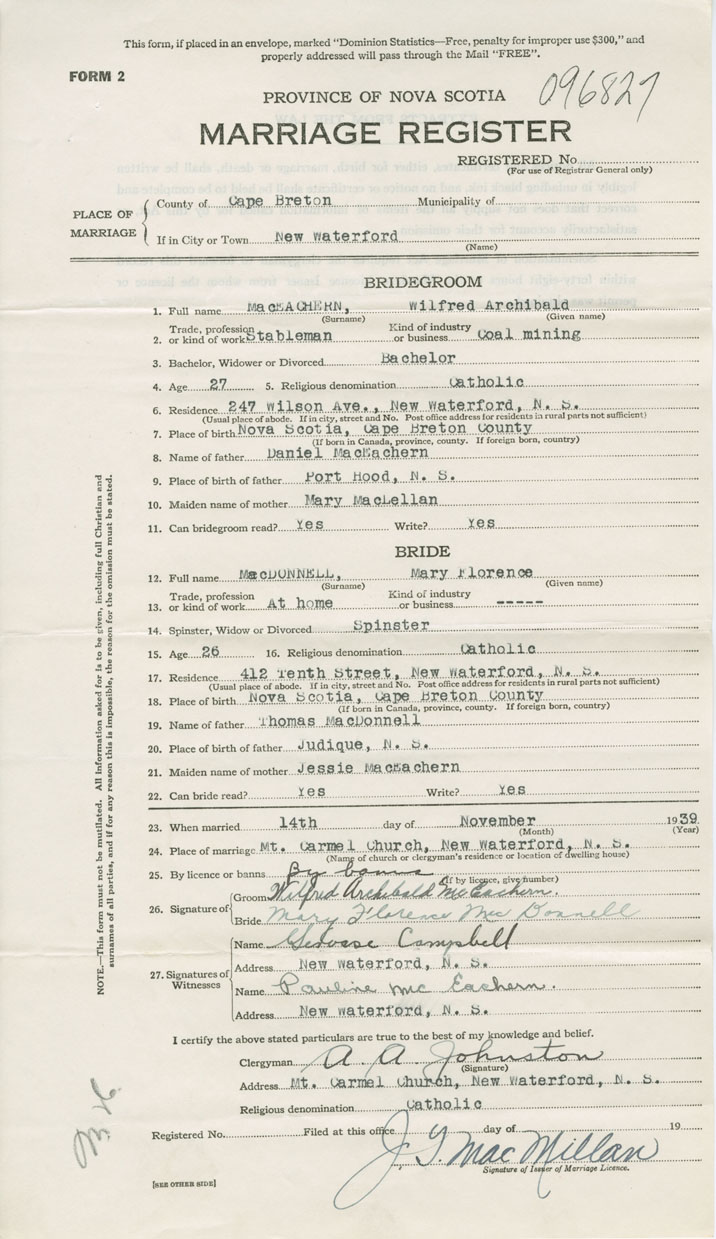 This form, if placed in an envelope, marked "Dominion Statistics—Free, penalty for improper use $300," and
properly addressed will pass through the Mail "FREE".
FORM 2
096827
PROVINCE OF NOVA SCOTIA
MARRIAGE REGISTER
REGISTERED No.
(For use of Registrar General only)
PLACE OF MARRIAGE
County of Cape Breton Municipality of
If in City or Town New Waterford
(Name)
BRIDEGROOM
1. Full name MacEACHERN, Wilfred Archibald
(Surname) (Given name)
2. Trade, profession or kind of work Stableman Kind of industry or business Coal mining
3. Bachelor, Widower or Divorced Bachelor
4. Age 27 5. Religious denomination Catholic
6. Residence 247 Wilson Ave., New Waterford, N. S.
(Usual place of abode. If in city, street and No. Post office address for residents in rural parts not sufficient)
7. Place of birth Nova Scotia, Cape Breton County
(If born in Canada, province, county. If foreign born, country)
8. Name of father Daniel MacEachern
9. Place of birth of father Port Hood, N. S.
10. Maiden name of mother Mary MacLellan
11. Can bridegroom read? Yes Write? Yes
BRIDE
12. Full name MacDONNELL, Mary Florence
(Surname) (Given name)
13. Trade, profession or kind of work At home Kind of industry or business -----
14. Spinster, Widow or Divorced Spinster
15. Age 26 16. Religious denomination Catholic
17. Residence 412 Tenth Street, New Waterford, N. S.
(Usual place of abode. If in city, street and No. Post office address for residents in rural parts not sufficient)
18. Place of birth Nova Scotia, Cape Breton County
(If born in Canada, province, county. If foreign born, country)
19. Name of father Thomas MacDonnell
20. Place of birth of father Judique, N. S.
21. Maiden name of mother Jessie MacEachern
22. Can bride read? Yes Write? Yes
23. When married 14th day of November 1939
(Month) (Year)
24. Place of marriage Mt. Carmel Church, New Waterford, N. S.
(Name of church or clergyman's residence or location of dwelling house)
25. By licence or banns By banns
(If by licence, give number)
26. Signature of
Groom Wilfred Archibald McEachern.
Bride Mary Florence Mc Donnell
27. Signatures of Witnesses
Name Gervase Campbell
Address New Waterford, N. S.
Name Pauline Mc Eachern.
Address New Waterford, N. S.
I certify the above stated particulars are true to the best of my knowledge and belief.
Clergyman A A Johnston
(Signature)
Address Mt. Carmel Church, New Waterford, N. S.
Religious denomination Catholic
Registered No. Filed at this office day of 19
J. Y. Mac Millan
Signature of Issuer of Marriage Licence.
[SEE OTHER SIDE]
NOTE.—This form must not be mutilated. All information asked for is to be given, including full Christian and
surnames of all parties, and if for any reason this is impossible, the reason for the omission must be stated.